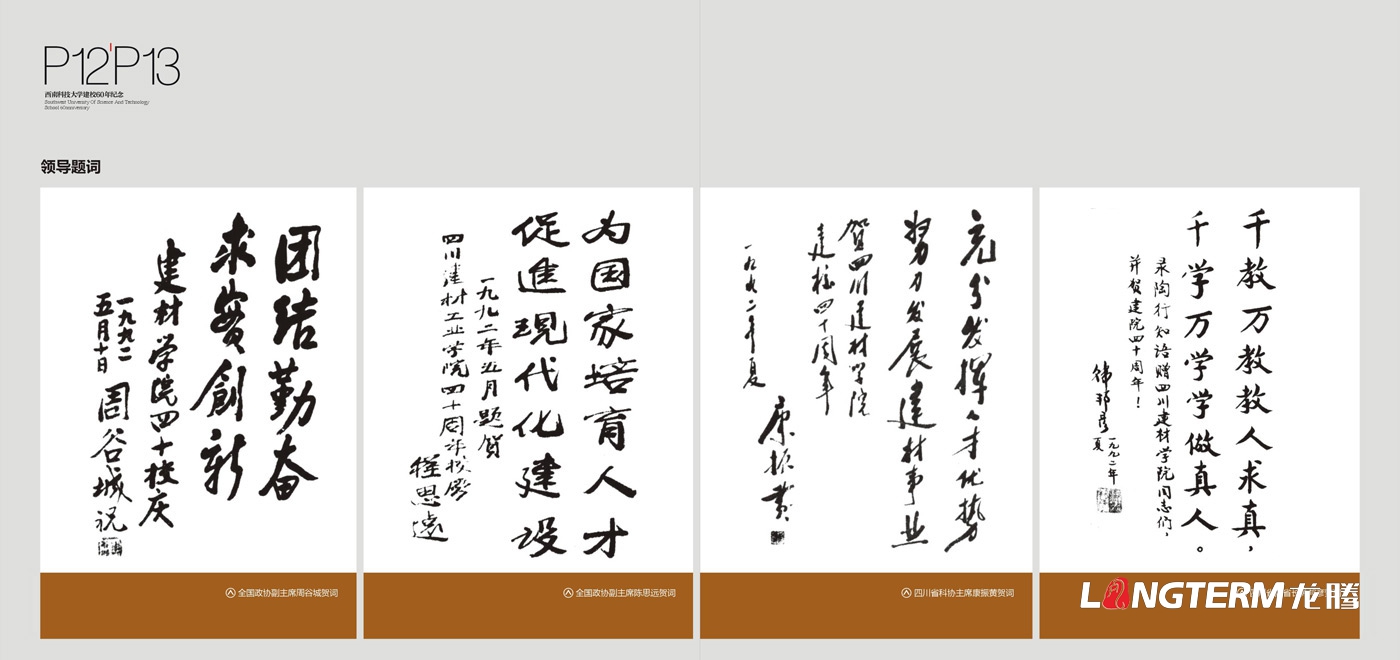 P12'P13
西南科技大学建校60年纪念
Southwest University Of Science And Technology
School 60anniversary
领导题词
团结勤奋
求实創新
建材学院四十校庆
一九九二
五月十日
周谷城祝
为国家培育人才
促進現代化建设
一九九二年五月题贺
四川建材工业学院四十周年校庆
程思遠
充分发挥人才优势
努力发展建材事业
贺四川建材学院
建校四十周年
一九九二年夏
康振黄
千教万教教人求真，
千学万学学做真人。
录陶行知语赠四川建材学院同志们，
并贺建院四十周年！
韩邦彦
一九九二年
夏
全国政协副主席周谷城贺词
全国政协副主席陈思远贺词
四川省科协主席康振黄贺词
LONGTERM 龙腾